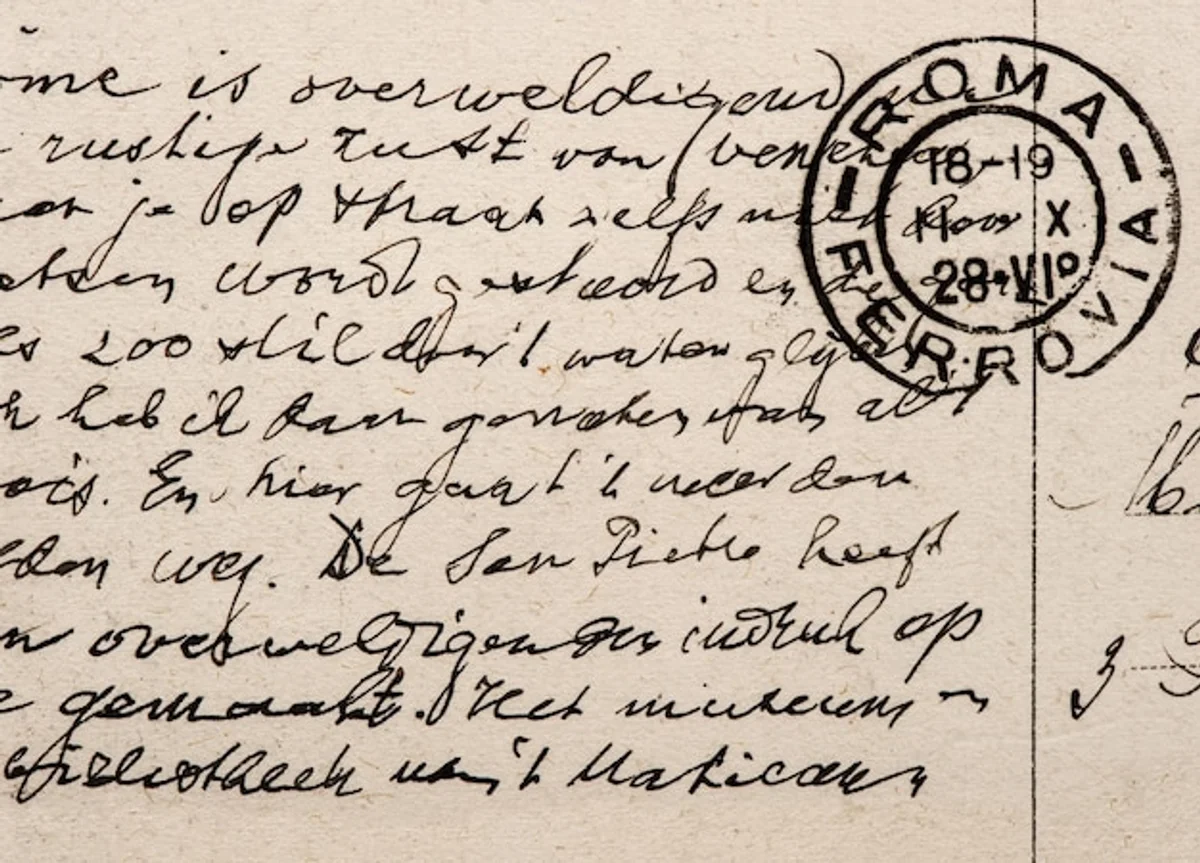 ome is overweldigend
rustige rust van Venetië
je op straat zelfs niet door
etsen wordt gestoord en de
200 stil door 't water
heb ik daar genoten van al 't
ois. En hier gaat 't weer
den weg. De San Pietro heeft
n overweldigenden indruk op
e gemaakt. Het museum en
bibliotheek van 't Vaticaan
ROMA FERROVIA
18-19
11 X
28·VIº
3